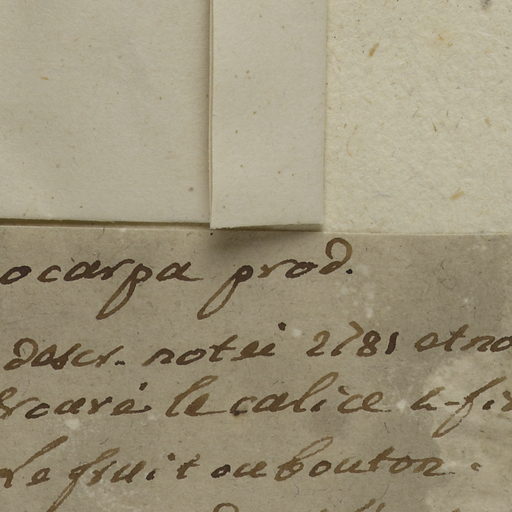 ocarpa prod.
descr. notéi 2781 et no
le calice a-fi
le fruit ou bouton.